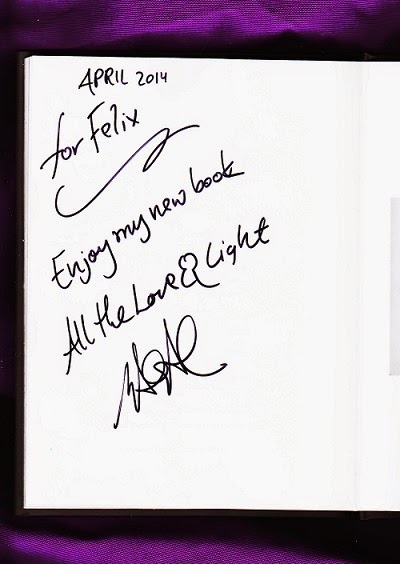 APRIL 2014
for Felix
Enjoy my new book
All the Love & Light